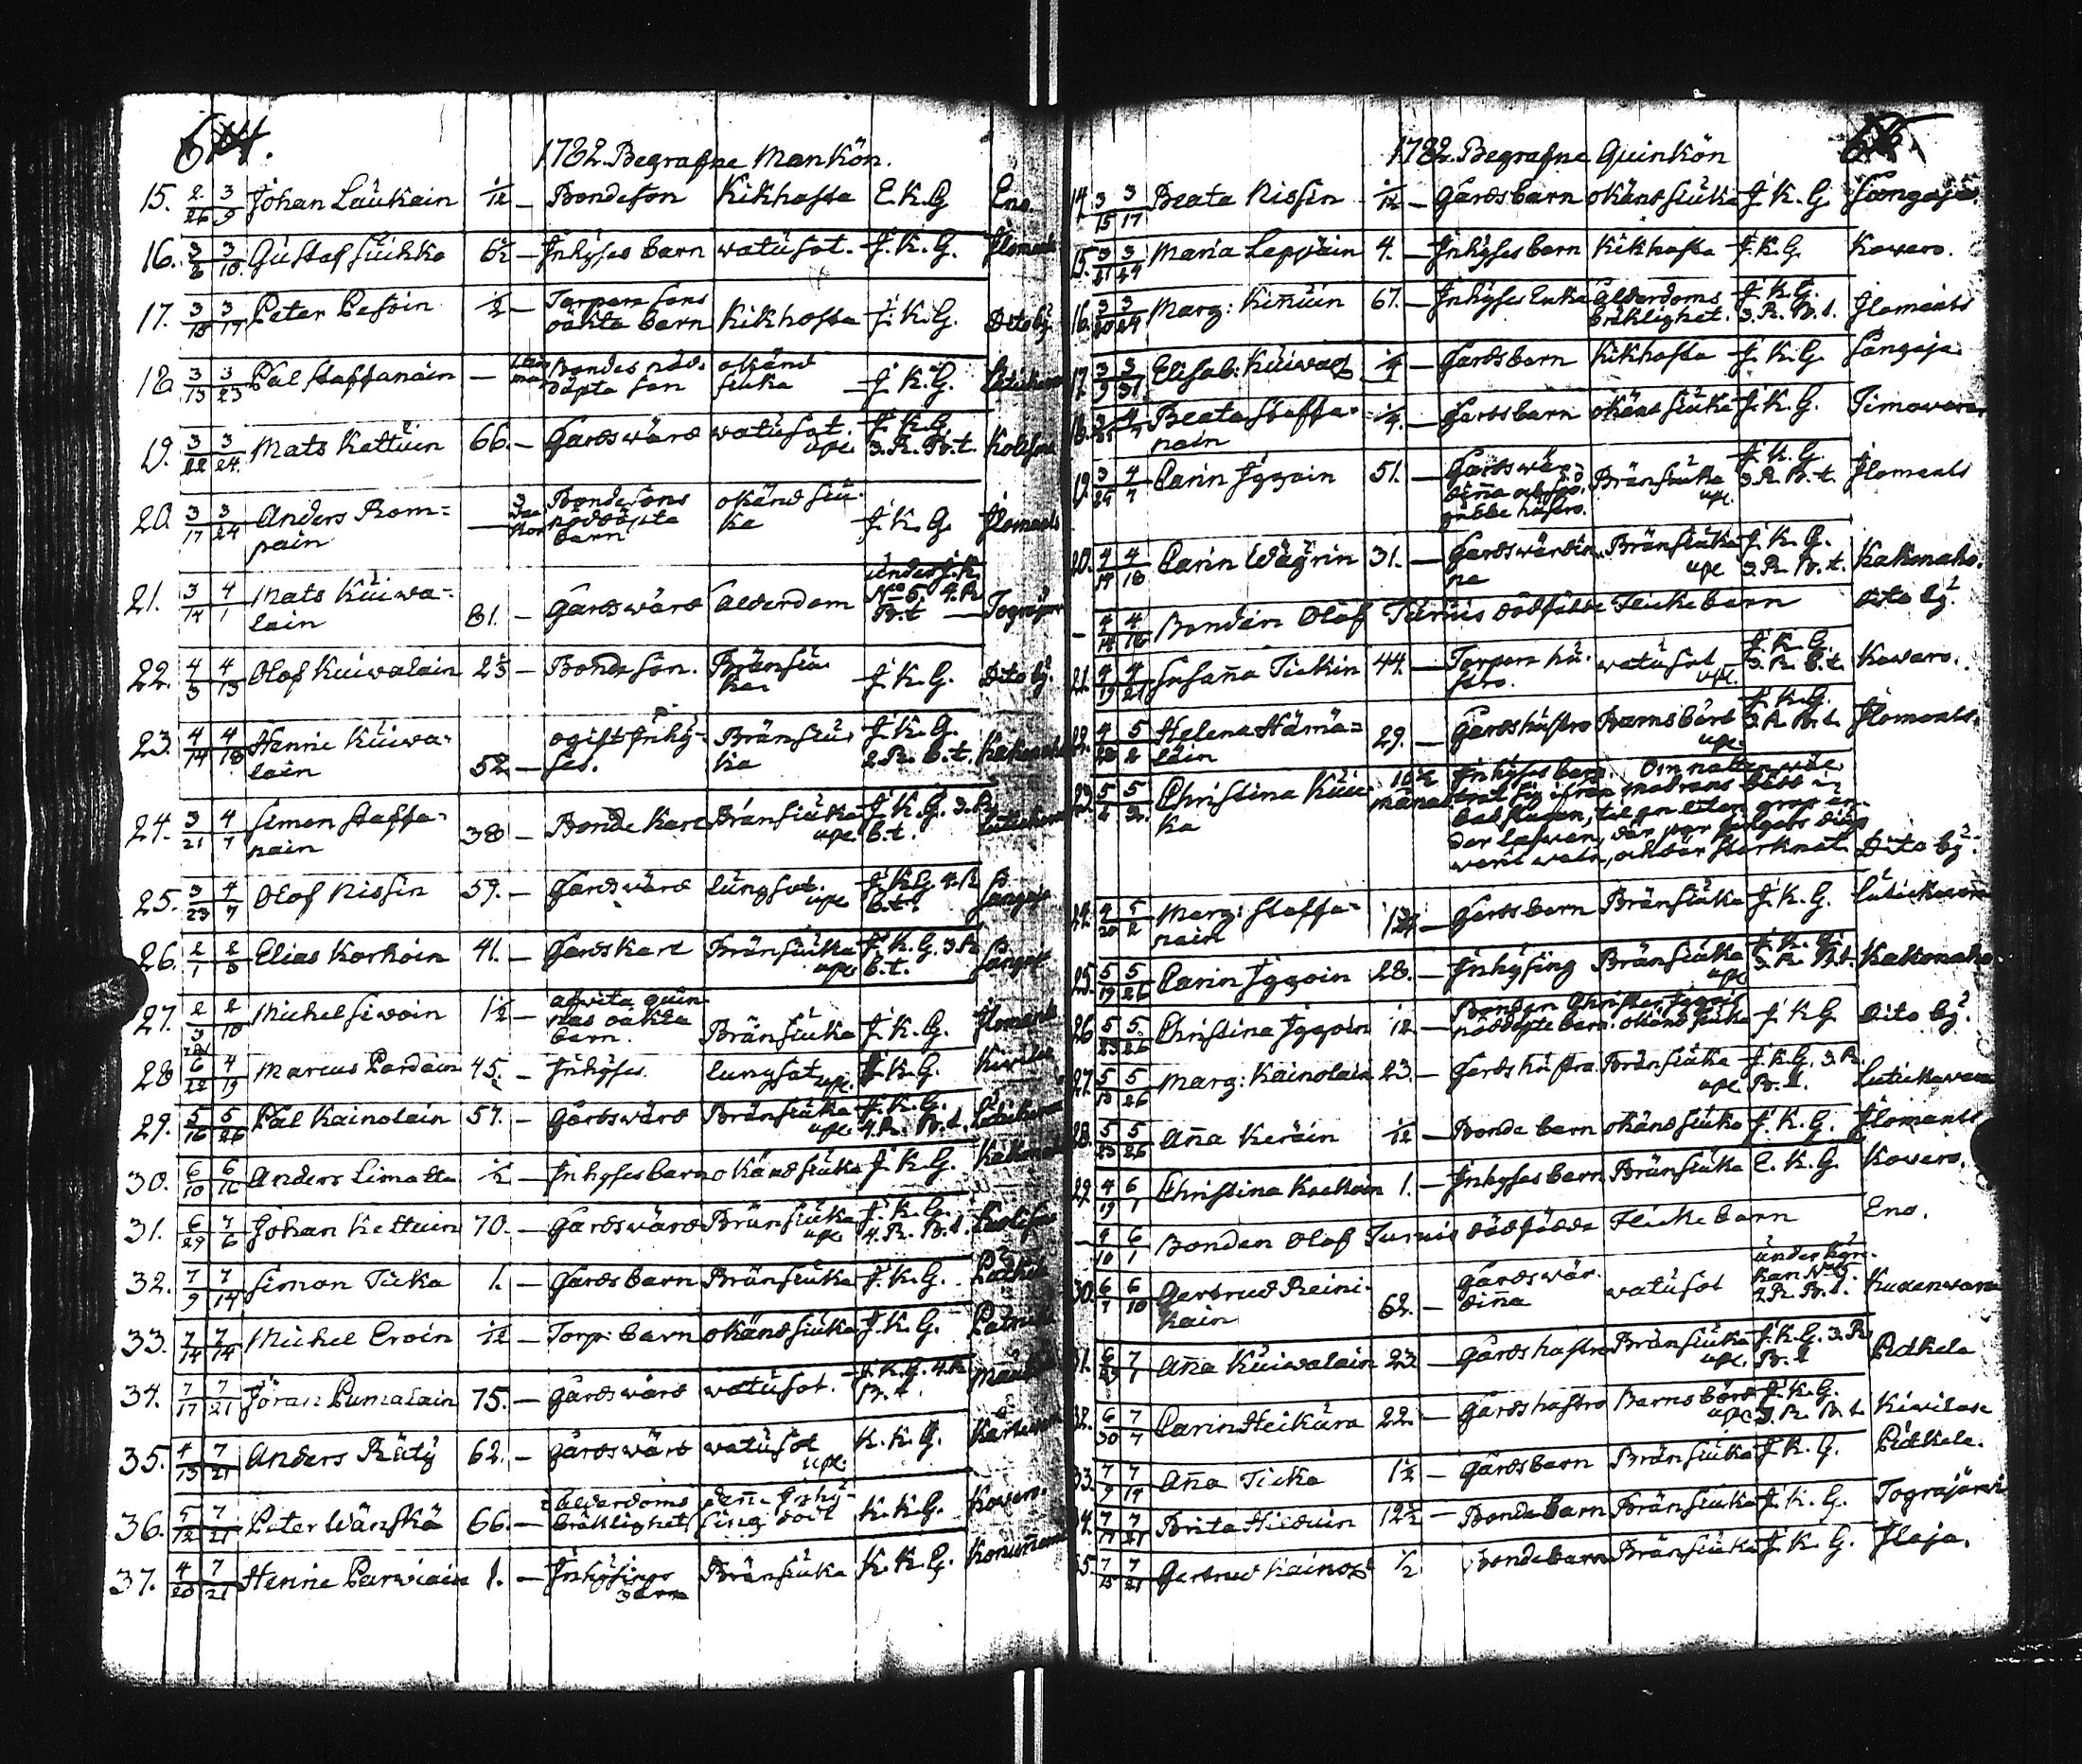 1782. Begrafne Mankön.
15. 2/26 3/9 Johan Laukain 1/12 — Bondeson Kikhosta E. K. G Eno.
16. 3/6 3/10 Gustaf Siikko 6 1/2 — Inhyses barn watusot. J. K. G. Ilomants
17. 3/10 3/17 Peter Pesoin 1/2 — Torpare sons oäkta barn Kikhosta J. K. G. Dito by.
18. 3/13 3/23 Pål Staffanain — Bondes nöd- döpta son okänd siuka J. K. G.
19. 3/22 3/24 Mats Kettuin 66. — Gårdswärd watusot. upl. J. K. G. 3. R. B. t.
20. 3/17 3/24 Anders Rom= pain — Bondesons nöddöpta barn okänd siu- ka J. K. G Ilomants
21. 3/14 4/1 Mats Kuiwa- lain 81. — Gårdswärd Ålderdom under J. K. No 5. 4. R B. t — Tograjerw
22. 4/3 4/13 Olof Kuiwalain 2 1/3 — Bonde son. Bränsiu- ka J. K. G. Dito by.
23. 4/14 4/18 Henric Kuiwa- lain 52. — ogift Inhy- ses. Bränsiu- ka J. K. G. 2. R. B. t.
24. 3/21 4/7 Simon Staffa- nain 38 — Bonde Karl Bränsiuka upl. J. K. G. 3. R. B. t.
25. 3/23 4/7 Olof Nissin 59. — Gårdswärd lungsot. upl J. K. G. 4. R B. t. Sangaja
26. 2/1 2/3 Elias Korhoin 41. — Gårdskarl Bränsiuka upl J. K. G. 3. R B. t. Sangaja
27. 2/3 2/10 Michel Siwoin 1 1/2 — afwita quin- nas oäkta barn. Bränsiuka J. K. G. Ilomants
28 6/22 4/19 Marcus Pardain 45. — Inhyses. lungsot upl. J. K. G. Kiwilax
29. 5/16 5/26 Pål Kainolain 57. — Gårdswärd Bränsiuka upl. J. K. G. 4. R. B. t.
30. 6/10 6/16 Anders Limatta 1/2 — Inhyses barn okänd siuka J. K. G.
31. 6/29 7/6 Johan Kettuin 70. — Gårdswärd Bränsiuka upl. J. K. G. 4. R. B. t.
32. 7/9 7/14 Simon Ticka 1. — Gårdsbarn Bränsiuka J. K. G.
33. 7/14 7/14 Michel Eroin 1/12 — Torp: barn okänd siuka J. K. G.
34. 7/17 7/21 Jöran Pumalain 75. — Gårdswärd watusot. J. K. G. 4. R. B. t.
35. 4/13 7/21 Anders Räty 62. — Gårdswärd watusot upl. K. K. G.
36. 5/12 7/21 Peter Wänskä 66. — Ålderdoms bräklighet, denne Inhy- sing död K. K. G. Kowero.
37. 4/20 7/21 Henric Parwiain 1. — Inhysings barn Bränsiuka K. K. G.
1782. Begrafne Quinkön
14. 3/15 3/17 Beata Nissin 1/12 — Gårdsbarn okänd siuka J. K. G. Sangaja.
15. 3/21 3/24 Maria Leppäin 4. — Inhyses barn Kikhosta J. K. G. Kowero.
16. 3/20 3/24 Marg: Kinnuin 67. — Inhyses Enka ålderdoms bräklighet. J. K. G. 3. R. B. t. Ilomants
17. 3/9 3/31 Elisab: Kuiwal 1/4 — Gårdsbarn Kikhosta J. K. G. Sangaja.
18. Beata Staffa- nain 1/4. — Gårdsbarn okänd siuka J. K. G. Timowaara
19. 3/29 4/7 Carin Iggoin 51. — Gårdswär- dinna Bränsiuka upl. J. K. G. 3. R. B. t. Ilomants
20. 4/14 4/18 Carin Wägrin 31. — Gårdswärdin- na Bränsiuka upl J. K. G. 3. R. B. t. Kakonaho.
— 4/14 4/18 Bonden Olof Turuis dödfödde Flickebarn dito by.
21. 4/19 4/21 Susanna Tickin 44. — Torpare hu- stro. watusot upl. J. K. G. 3. R. B. t. Kowero.
22. 4/28 5/2 Helena Hämä= läin 29. — Gårdshustro Barnsbörd upl. J. K. G. 3. R. B. t. Ilomants.
23. 5/2 Christina Kuu- ka 10 1/2 månat Inhyses barn. Om natten wäl- trat sig ifrån modrens bädd i badstugan, til en liten grop un- der lafwan, där war watn, och där storknat. Dito by.
24. 4/20 5/2 Marg: Staffa- nain — Gårdsbarn Bränsiuka J. K. G. Lutickawara
25. 5/19 5/26 Carin Iggoin 28. — Inhysing Bränsiuka upl J. K. G. 3. R. B. t. Kakonaho.
26 5/23 5/26 Christina Iggoin 1/12 — Bonden Christer Iggois nöddöpte barn. okänd siuka J. K. G Dito by.
27. 5/13 5/26 Marg: Kainolain 23. — Gårdshustro Bränsiuka upl J. K. G. 3. R. B. t. Lutickawara
28. 5/23 5/26 Anna Keräin 1/12 — Bonde barn okänd siuka J. K. G. Ilomants
29. 4/19 6/1 Christina Kockoin 1. — Inhyses barn Bränsiuka E. K. G Kowero.
— 4/10 6/1 Bonden Olof Turuis dödfödde Flickebarn Eno.
30. 6/7 6/10 Gertrud Reini- kain 62. — Gårdswär- dinna watusot under kyr- kan No 5. 2. R. B. t. Kuuanwara
31. 6/29 7/1 Anna Kuiwalain 23 — Gårdshustro Bränsiuka upl. J. K. G. 3. R. B. t Putkela
32. 6/30 7/7 Carin Heikura 22. — Gårdshustro Barnsbörd upl J. K. G. 3. R. B. t. Kiwilax
33. 7/9 7/14 Anna Ticka 1 1/2 — Gårdsbarn Bränsiuka J. K. G. Putkela.
34. 7/17 7/21 Brita Hilduin 12 1/2 — Bonde barn Bränsiuka J. K. G. Tograjärwi
35. 7/15 7/21 Gertrud Kainol 1/2 Bonde barn Bränsiuka J. K. G. Ilaja.